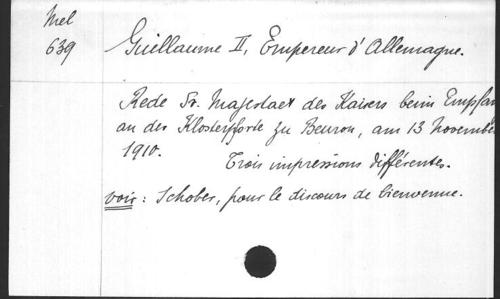 Mel
639
Guillaume II, Empereur d'Allemagne.
Rede Sr. Majestaet des Kaisers beim Empfang
an der Klosterpforte zu Beuron, am 13 November
1910.
Trois impressions différentes.
voir: Schober, pour le discours de bienvenue.